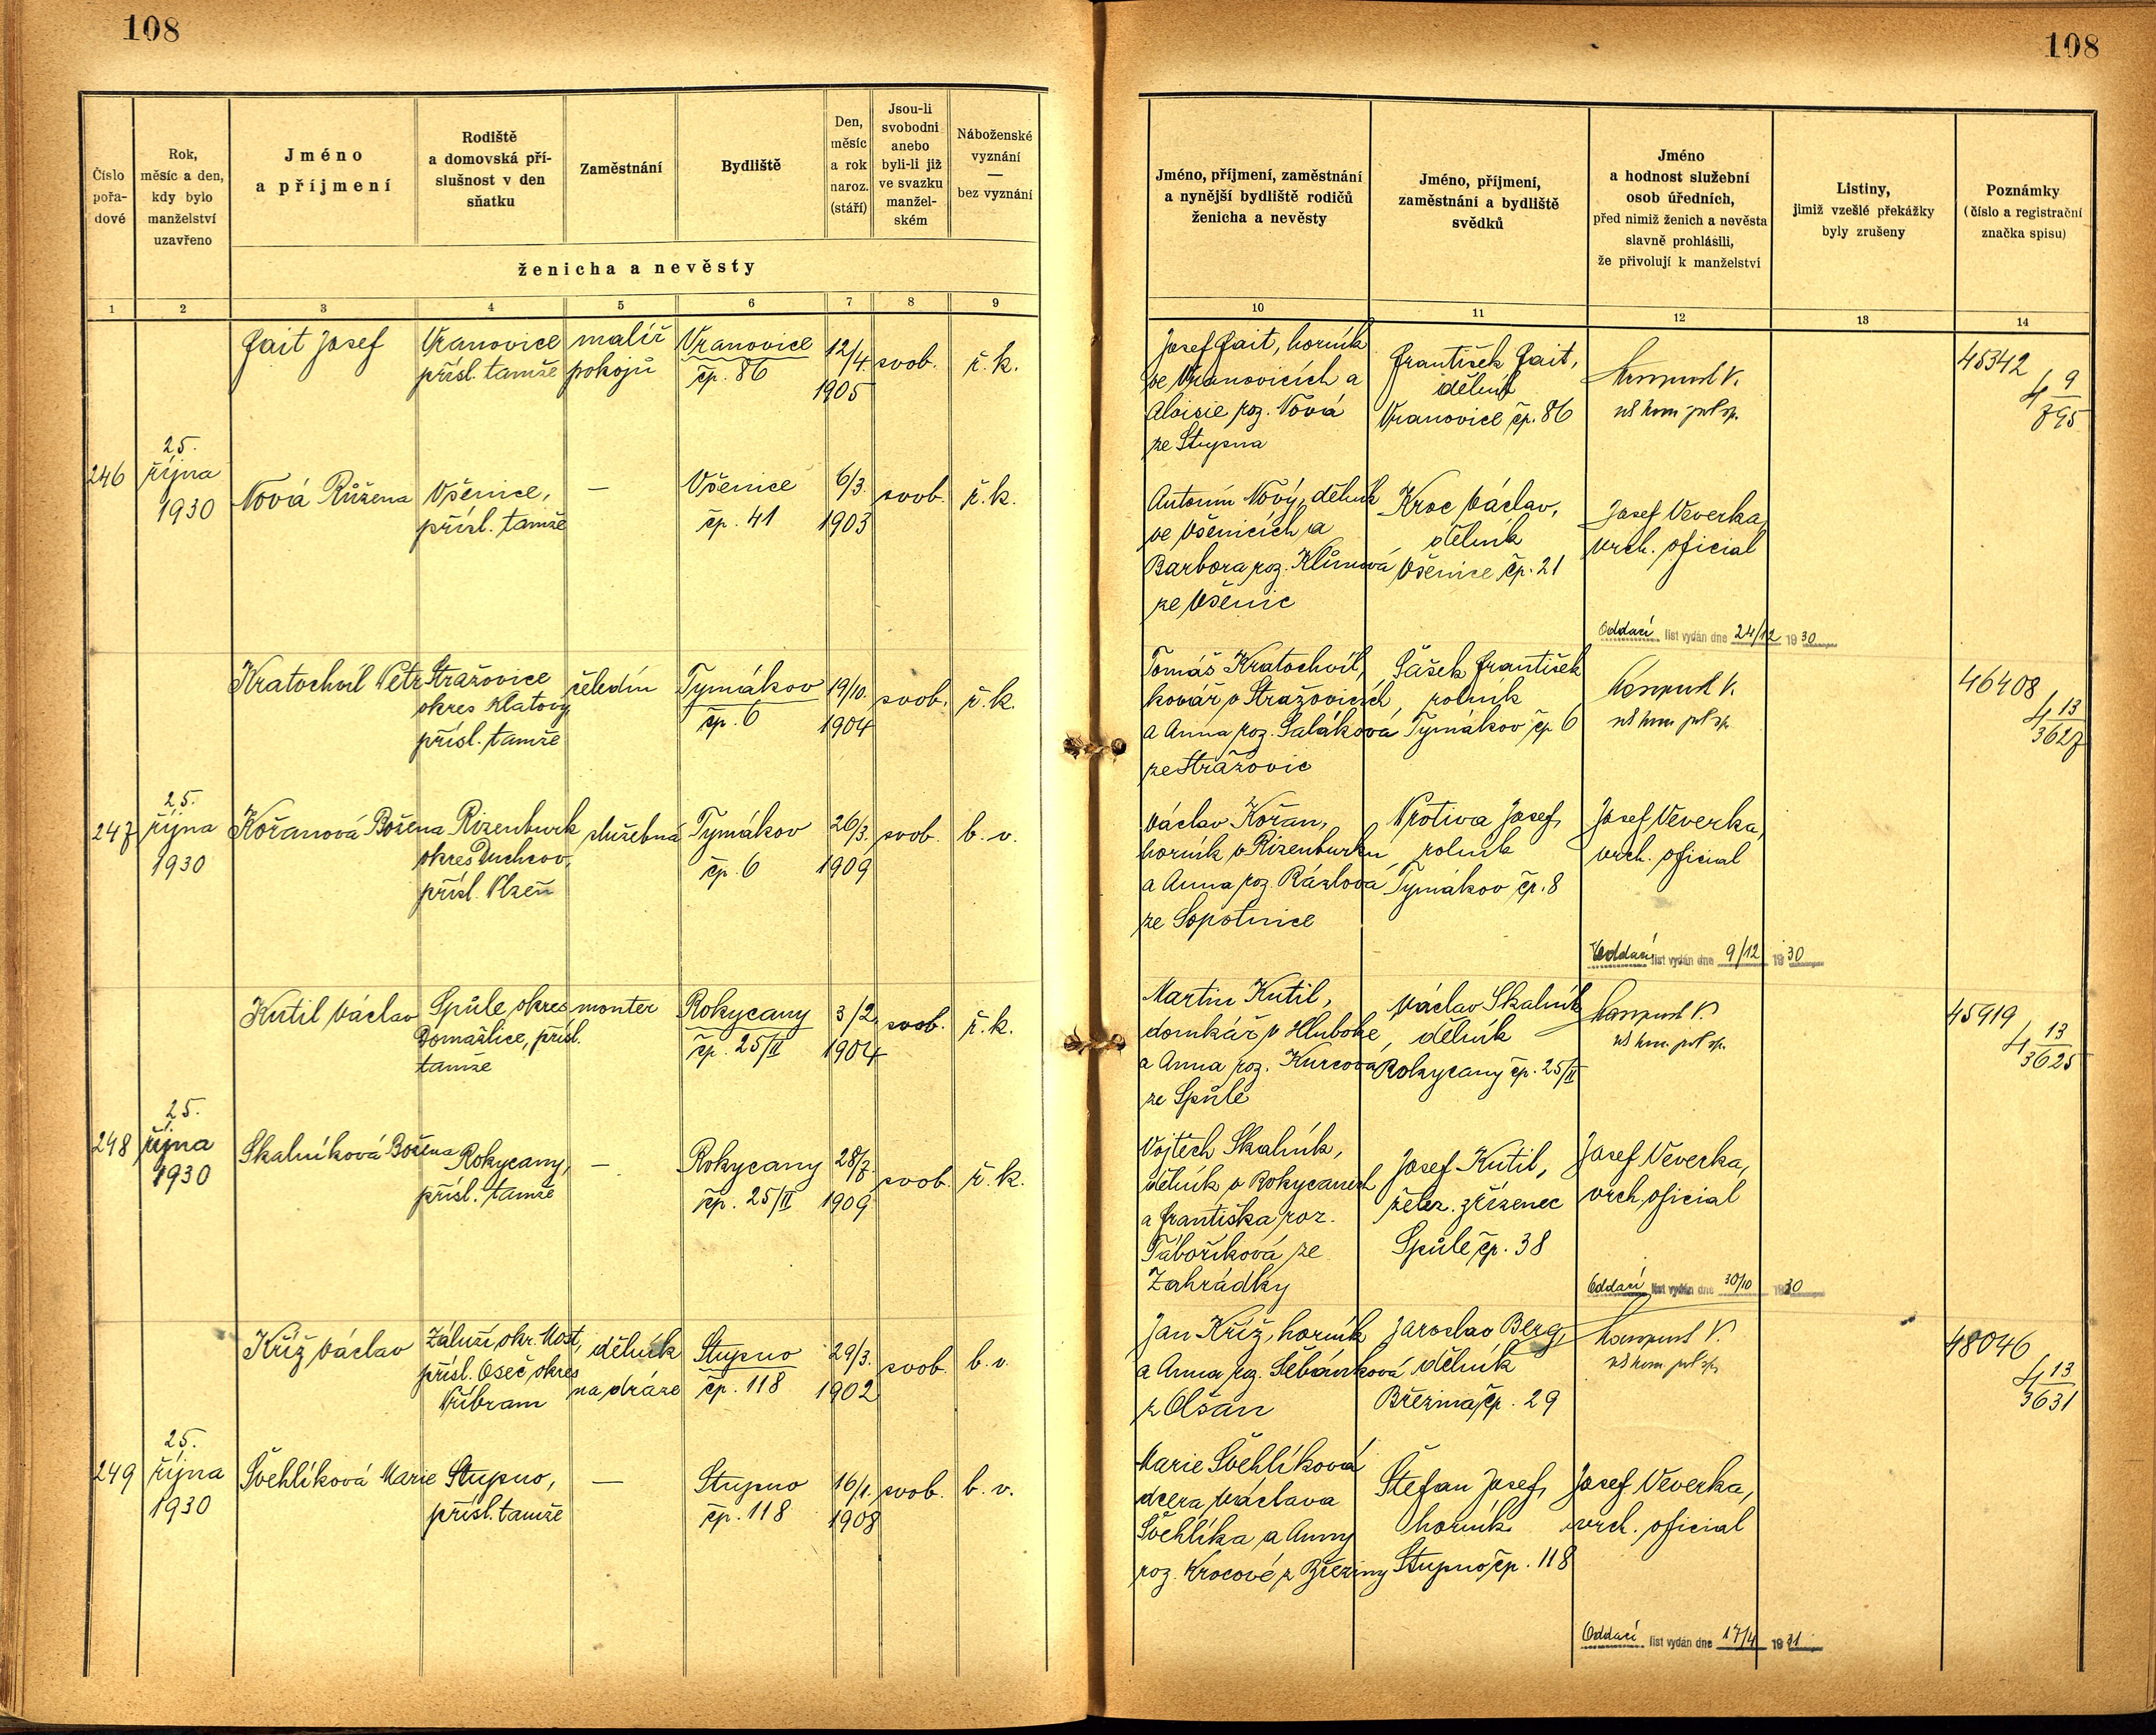 108
108
Číslo
pořa-
dové
Rok,
měsíc a den,
kdy bylo
manželství
uzavřeno
Jméno
a příjmení
Rodiště
a domovská pří-
slušnost v den
sňatku
Zaměstnání
Bydliště
Den,
měsíc
a rok
naroz.
(stáří)
Jsou-li
svobodni
anebo
byli-li již
ve svazku
manžel-
ském
Náboženské
vyznání
—
bez vyznání
ženicha a nevěsty
Jméno, příjmení, zaměstnání
a nynější bydliště rodičů
ženicha a nevěsty
Jméno, příjmení,
zaměstnání a bydliště
svědků
Jméno
a hodnost služební
osob úředních,
před nimiž ženich a nevěsta
slavně prohlásili,
že přivolují k manželství
Listiny,
jimiž vzešlé překážky
byly zrušeny
Poznámky
(číslo a registrační
značka spisu)
1 2 3 4 5 6 7 8 9
10 11 12 13 14
246
25.
října
1930
Fait Josef
Vranovice
přísl. tamže
malíř
pokojů
Vranovice
čp. 86
12/4.
1905
svob.
ř. k.
Josef Fait, horník
ve Vranovicích a
Aloisie roz. Nová
ze Stupna
František Fait,
dělník
Vranovice čp. 86
45342
4 9
795
Nová Růžena
Všenice,
přísl. tamže
—
Všenice
čp. 41
6/3.
1903
svob.
ř. k.
Antonín Nový, dělník
ve Všenicích a
Barbora roz. Klůnová
ze Všenic
Kroc Václav,
dělník
Všenice čp. 21
Josef Veverka,
vrch. oficial
Oddací list vydán dne 24/12 1930
247
25.
října
1930
Kratochvíl Petr
Stražovice
okres Klatovy
přísl. tamže
čeledín
Tymákov
čp. 6
19/10.
1904
svob.
ř. k.
Tomáš Kratochvíl,
kovář v Stražovicích
a Anna roz. Saláková
ze Stražovic
Šašek František
rolník
Tymákov čp. 6
46408
4 13
3627
Kořanová Božena
Rizenburk
okres Duchcov,
přísl. Plzeň
služebná
Tymákov
čp. 6
26/3.
1909
svob.
b. v.
Václav Kořan,
horník v Rizenburku
a Anna roz. Rázlová
ze Sopotnice
Protiva Josef,
rolník
Tymákov čp. 8
Josef Veverka,
vrch. oficial
Oddací list vydán dne 9/12 1930
248
25.
října
1930
Kutil Václav
Spůle okres
Domažlice, přísl.
tamže
monter
Rokycany
čp. 25/II
3/2.
1904
svob.
ř. k.
Martin Kutil,
domkář v Hluboke
a Anna roz. Kurcová
ze Spůle
Václav Skalník
dělník
Rokycany čp. 25/II
45919
4 13
3625
Skalníková Božena
Rokycany,
přísl. tamže
—
Rokycany
čp. 25/II
28/7.
1909
svob.
ř. k.
Vojtěch Skalník,
dělník v Rokycanech
a Františka roz.
Táboříková ze
Zahrádky
Josef Kutil,
želez. zřízenec
Spůle čp. 38
Josef Veverka,
vrch. oficial
Oddací list vydán dne 30/10 1930
249
25.
října
1930
Kříž Václav
Záluží okr. Most,
přísl. Oseč okres
Příbram
dělník
na dráze
Stupno
čp. 118
29/3.
1902
svob.
b. v.
Jan Kříž, horník
a Anna roz. Šebánková
z Olšan
Jaroslav Berg,
dělník
Březina čp. 29
48046
4 13
3631
Švehlíková Marie
Stupno,
přísl. tamže
—
Stupno
čp. 118
16/1.
1908
svob.
b. v.
Marie Švehlíková
dcera Václava
Švehlíka a Anny
roz. Krocové z Březiny
Štefan Josef,
horník
Stupno čp. 118
Josef Veverka,
vrch. oficial
Oddací list vydán dne 17/4 1931